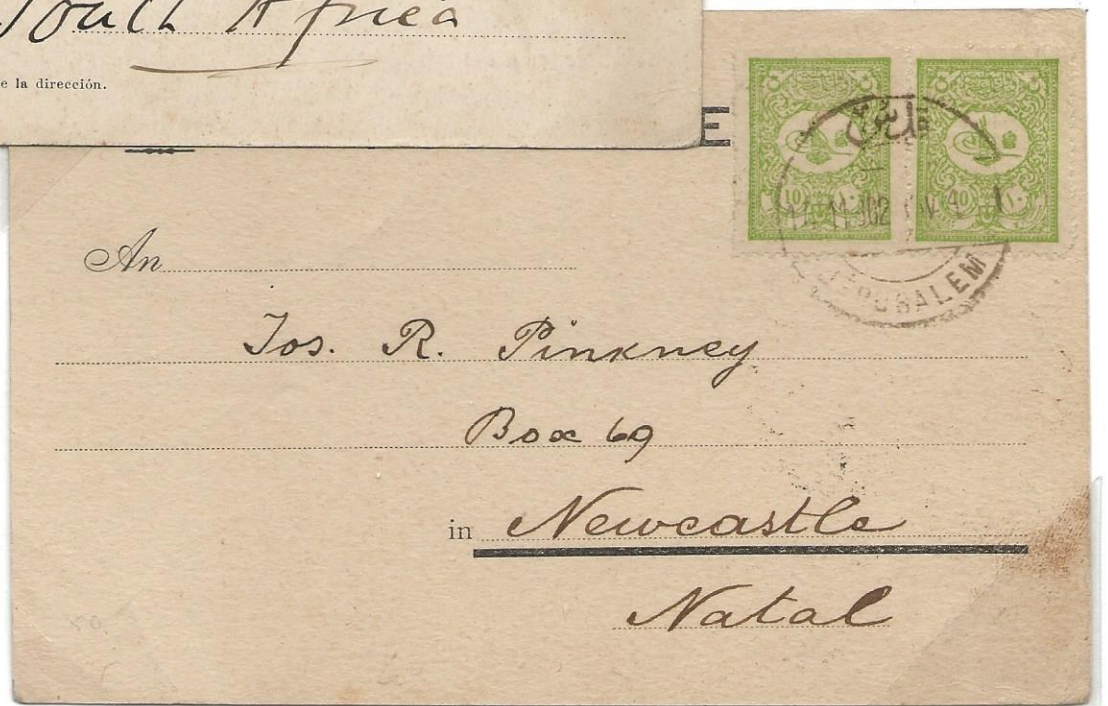 South Africa
e la dirección.
E
10 10
An
JERUSALEM
Jos. R. Pinkney
Box 69
in Newcastle
Natal